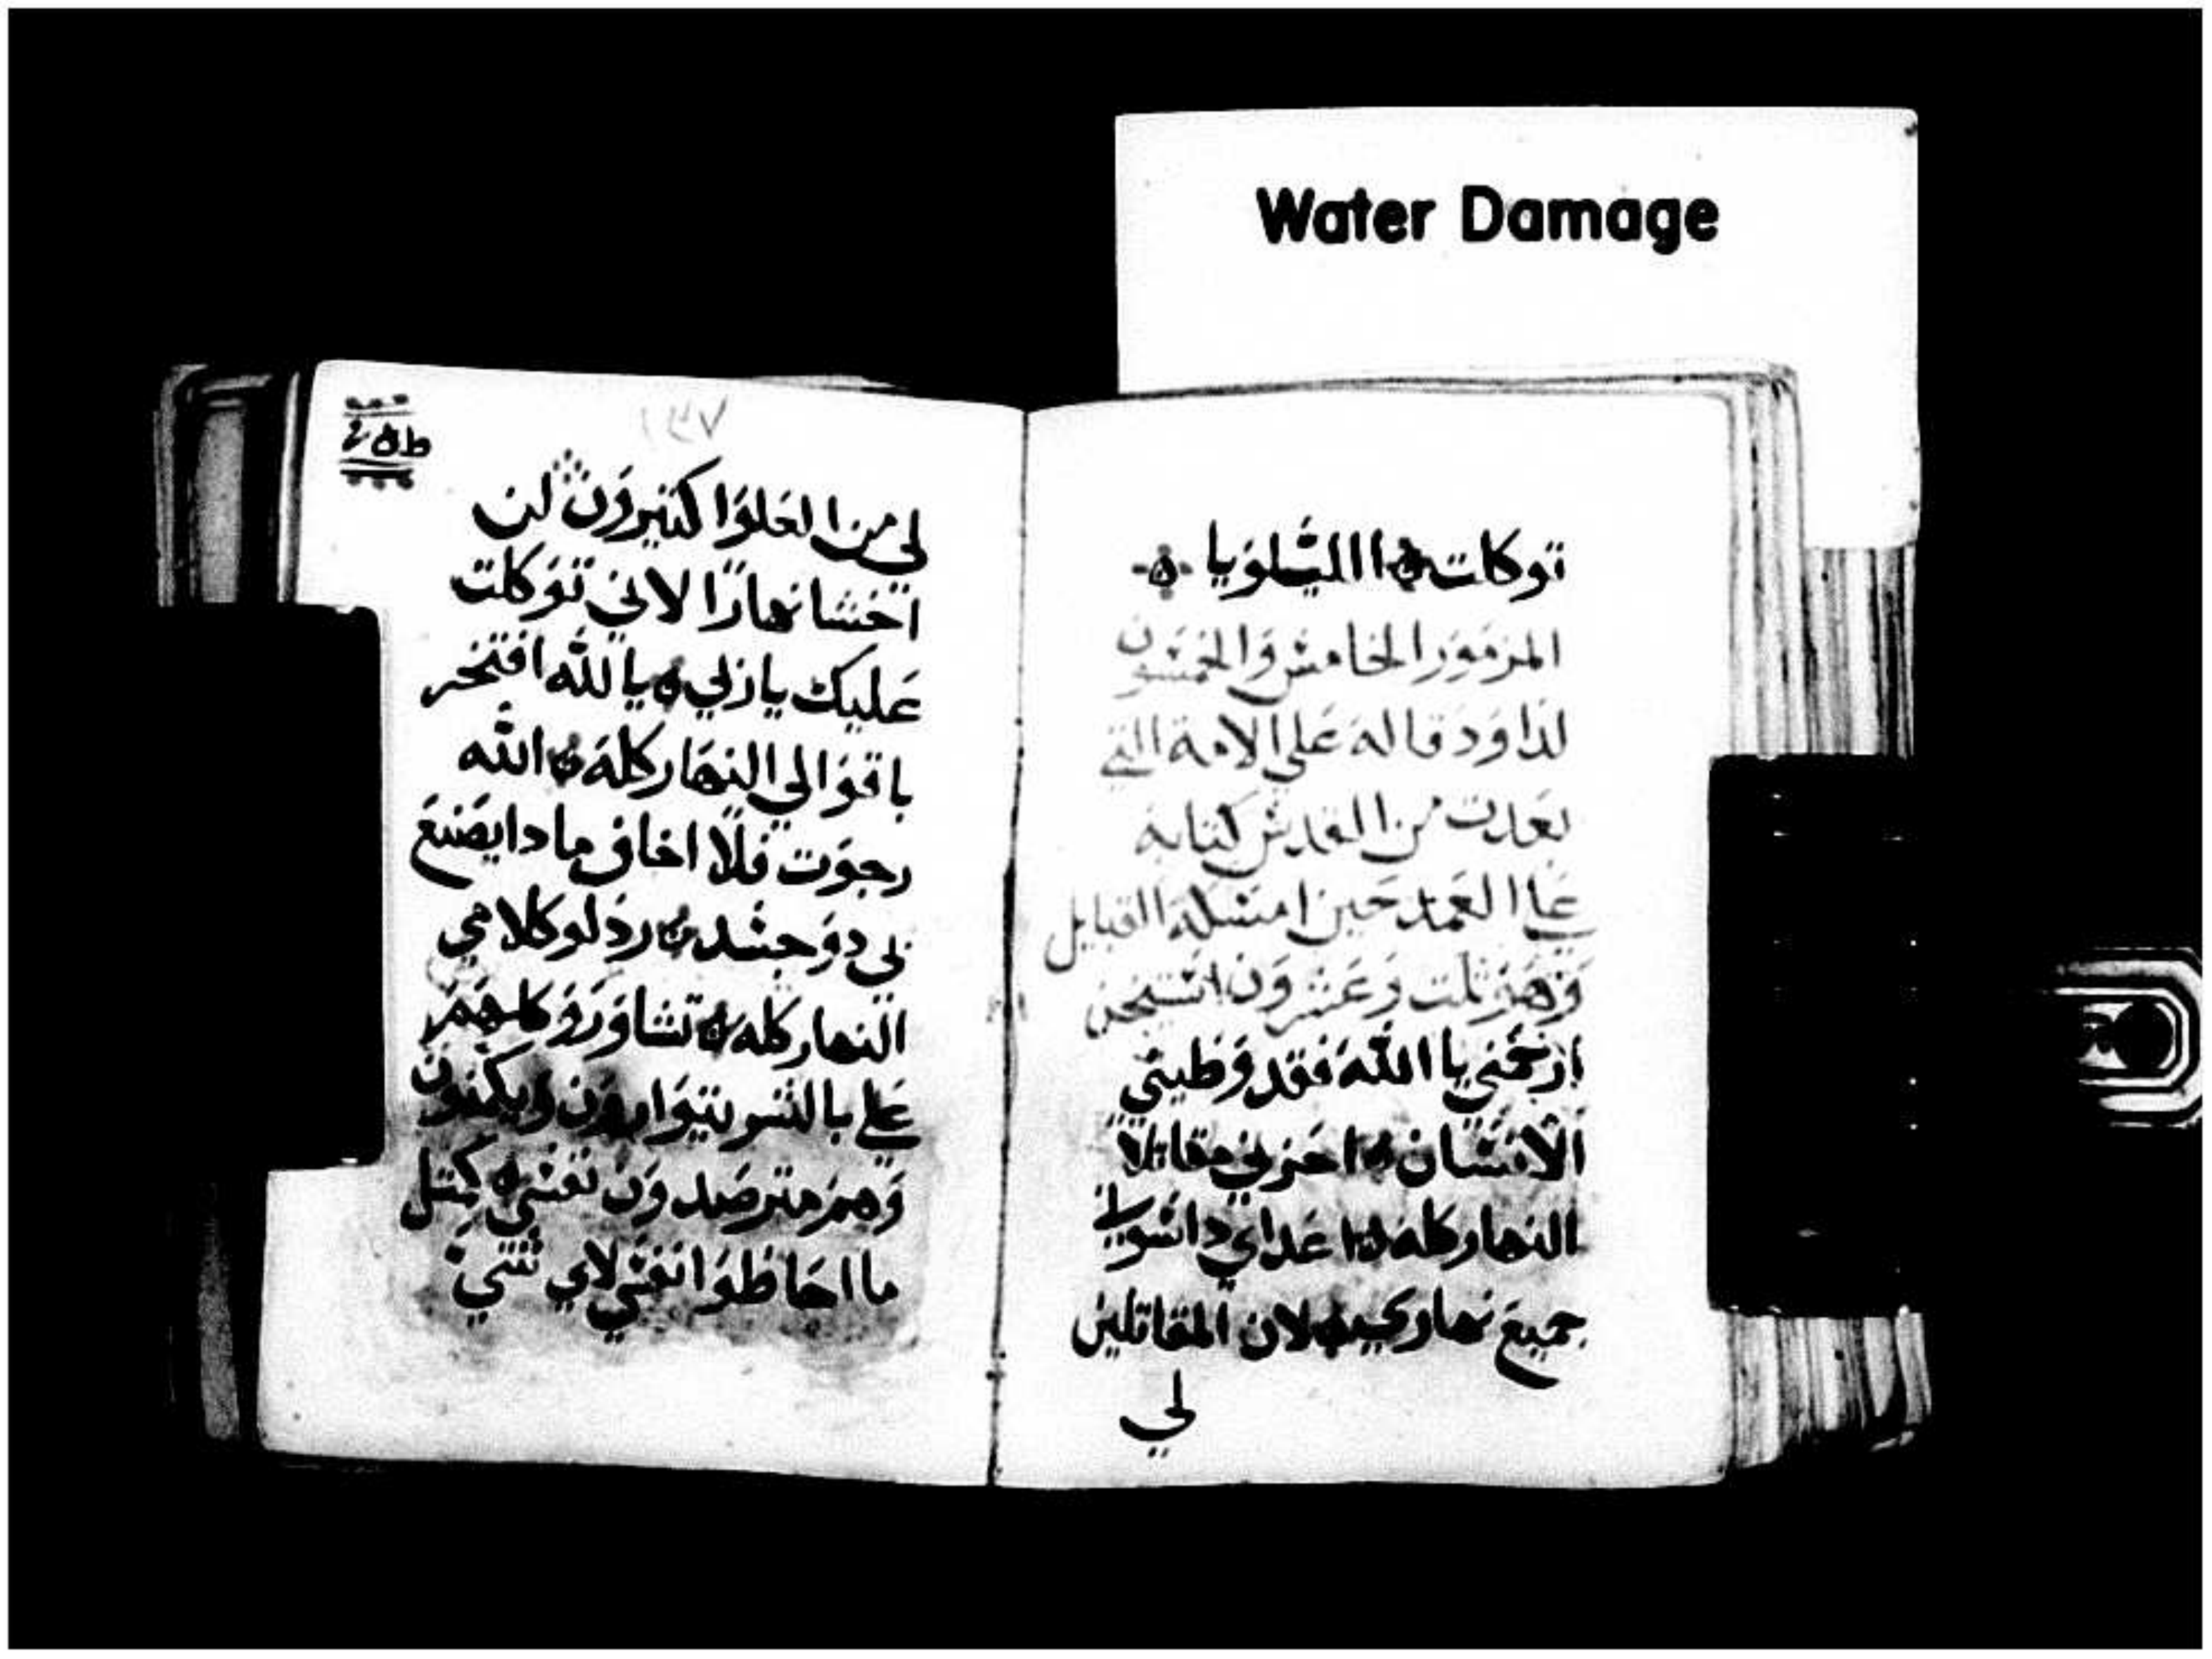 Water Damage
توكلت ه الليلويا ه
المزمور الخامس والخمسون
لداود قاله على الامة التي
بعدت من القدس كتابة
على العمد حين امسكه القبايل
وهو تلت وعشرون استيخن
ارحمني يا الله فقد وطيني
الانسان ه احزني مقاتلا
النهار كله ه اعداي داسوني
جميع نهاري ه لان المقاتلين
لي
لي من العلوا كتيرون لن
اخشا نهارا لاني توكلت
عليك يا ربي ه يالله افتخر
باقوالي النهار كله ه الله
رجوت فلا اخاف مادا يصنع
بي دو جسد ه ردلو كلامي
النهار كله ه تشاوروو كلهم
علي بالشر يتوارون ويكنون
وهم مترصدون نفسي ه كمتل
ما احاطوا نفسي لاي شي